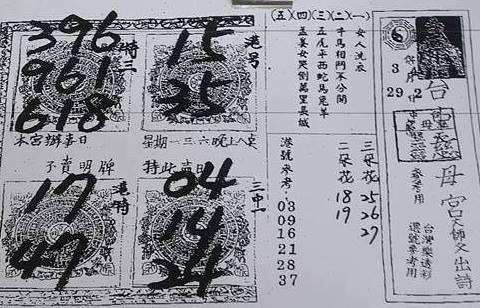 母宮天師文出詩
台灣樂透彩
選號參考用
參考用
3
29 2
(五)(四)(三)(二)(一)
女人洗衣
牛馬相鬥不分開
五虎平西蛇馬兔羊
孟姜女哭倒萬里長城
三朵花 25
26
27
二朵花 18
19
港號參考
03
09
16
21
28
37
港号
15
25
特三
396
961
618
本宮辦事日 星期一三六晚上八点
予責明牌 特此声明
三中一
04
14
24
港特
17
47